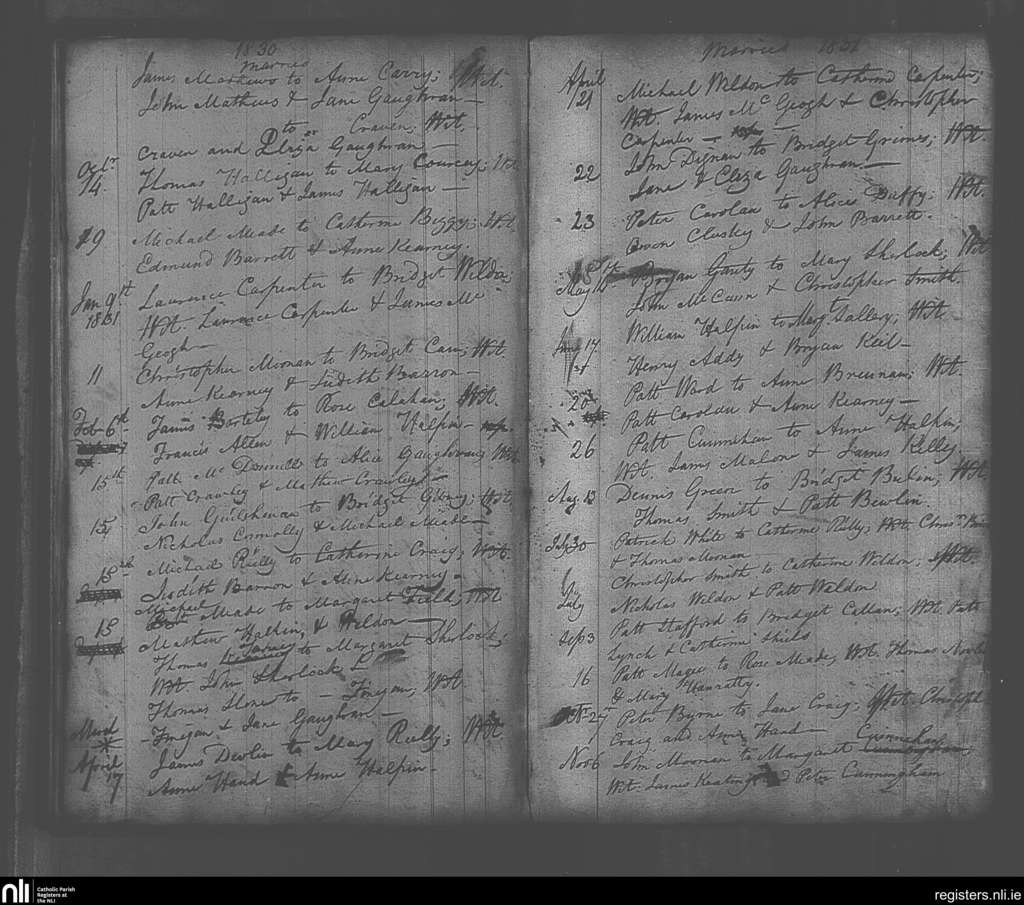 1830
Married
James Mathews to Anne Carry; Wit.
John Mathews & Jane Gaughran —
to Craven; Wit.
Craven and Eliza Gaughran —
Octr. 14. Thomas Halligan to Mary Courcey; Wit.
Patt Halligan & James Halligan —
19 Michael Meade to Catherine Beggy; Wit.
Edmund Barrett & Anne Kearney.
Jan 9st 1831 Laurence Carpenter to Bridget
Wit. Laurence Carpenter & James Mc
Geogh —
11 Christopher Moonan to Bridget Wit.
Anne Kearney & Judith Barron —
Feb 6th James to Rose Calahan; Wit.
Francis Allen & William Halpin —
15th Patt Mc Donnell to Alice Gaughran; Wit.
Patt Crawley & Mathew Crawley —
15 John to Bridget Gibney; Wit.
Nicholas Connolly & Michael Meade —
15th Michael Reilly to Catherine Craig; Wit.
Judith Barron & Anne Kearney —
15 Michael Meade to Margaret Field; Wit
Mathew Halpin, & Weldon —
Thomas to Margaret Sherlock;
Wit. John Sherlock
Thomas to — Finegan; Wit
Finegan, & Jane Gaughran —
April 17 James Devlin to Mary Reilly; Wit
Anne Hand & Anne Halpin —
Married 1831
April 21 Michael Weldon to Catherine Carpenter;
Wit. James Mc Geogh & Christopher
Carpenter —
22 John Dignan to Bridget Grimes; Wit.
Jane & Eliza Gaughran —
23 Peter Carolan to Alice Duffy; Wit.
Owen Cluskey & John Barrett.
May Bryan Garity to Mary Sherlock; Wit
John McCann & Christopher Smith.
17 William Halpin to Mary Wit.
Henry Addy & Bryan Keil —
20 Patt Ward to Anne Brennan; Wit.
Patt Carolan & Anne Kearney —
26 Patt to Anne Halpin;
Wit. James Malone & James Kelley
Aug. 13 Dennis Green to Bridget Wit.
Thomas Smith & Patt Bewlin
July 30 Patrick White to Catherine Reilly; Wit.
& Thomas Moonan
July Christopher Smith to Catherine Weldon; Wit.
Nicholas Weldon & Patt Weldon
Sep 3 Patt Stafford to Bridget Callan; Wit. Patt
Lynch & Catherine Shiels
16 Patt Magee to Rose Meade; Wit. Thomas
& Mary Hanratty.
27 Peter Byrne to Jane Craig; Wit. Christoph
Craig and Anne Hand —
Nov 6 John Moonan to Margaret
Wit. James Keating and Peter Cunningham
nli
Catholic Parish
Registers at
the NLI
registers.nli.ie